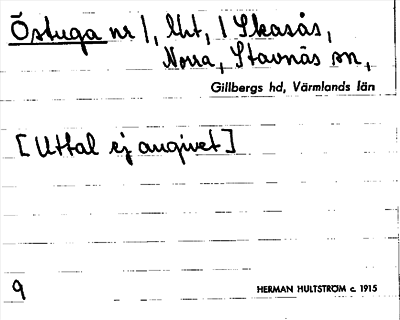 Östuga nr 1, lht, 1 Skasås,
Norra, Stavnäs sn,
Gillbergs hd, Värmlands län
[Uttal ej angivet]
9
HERMAN HULTSTRÖM c. 1915